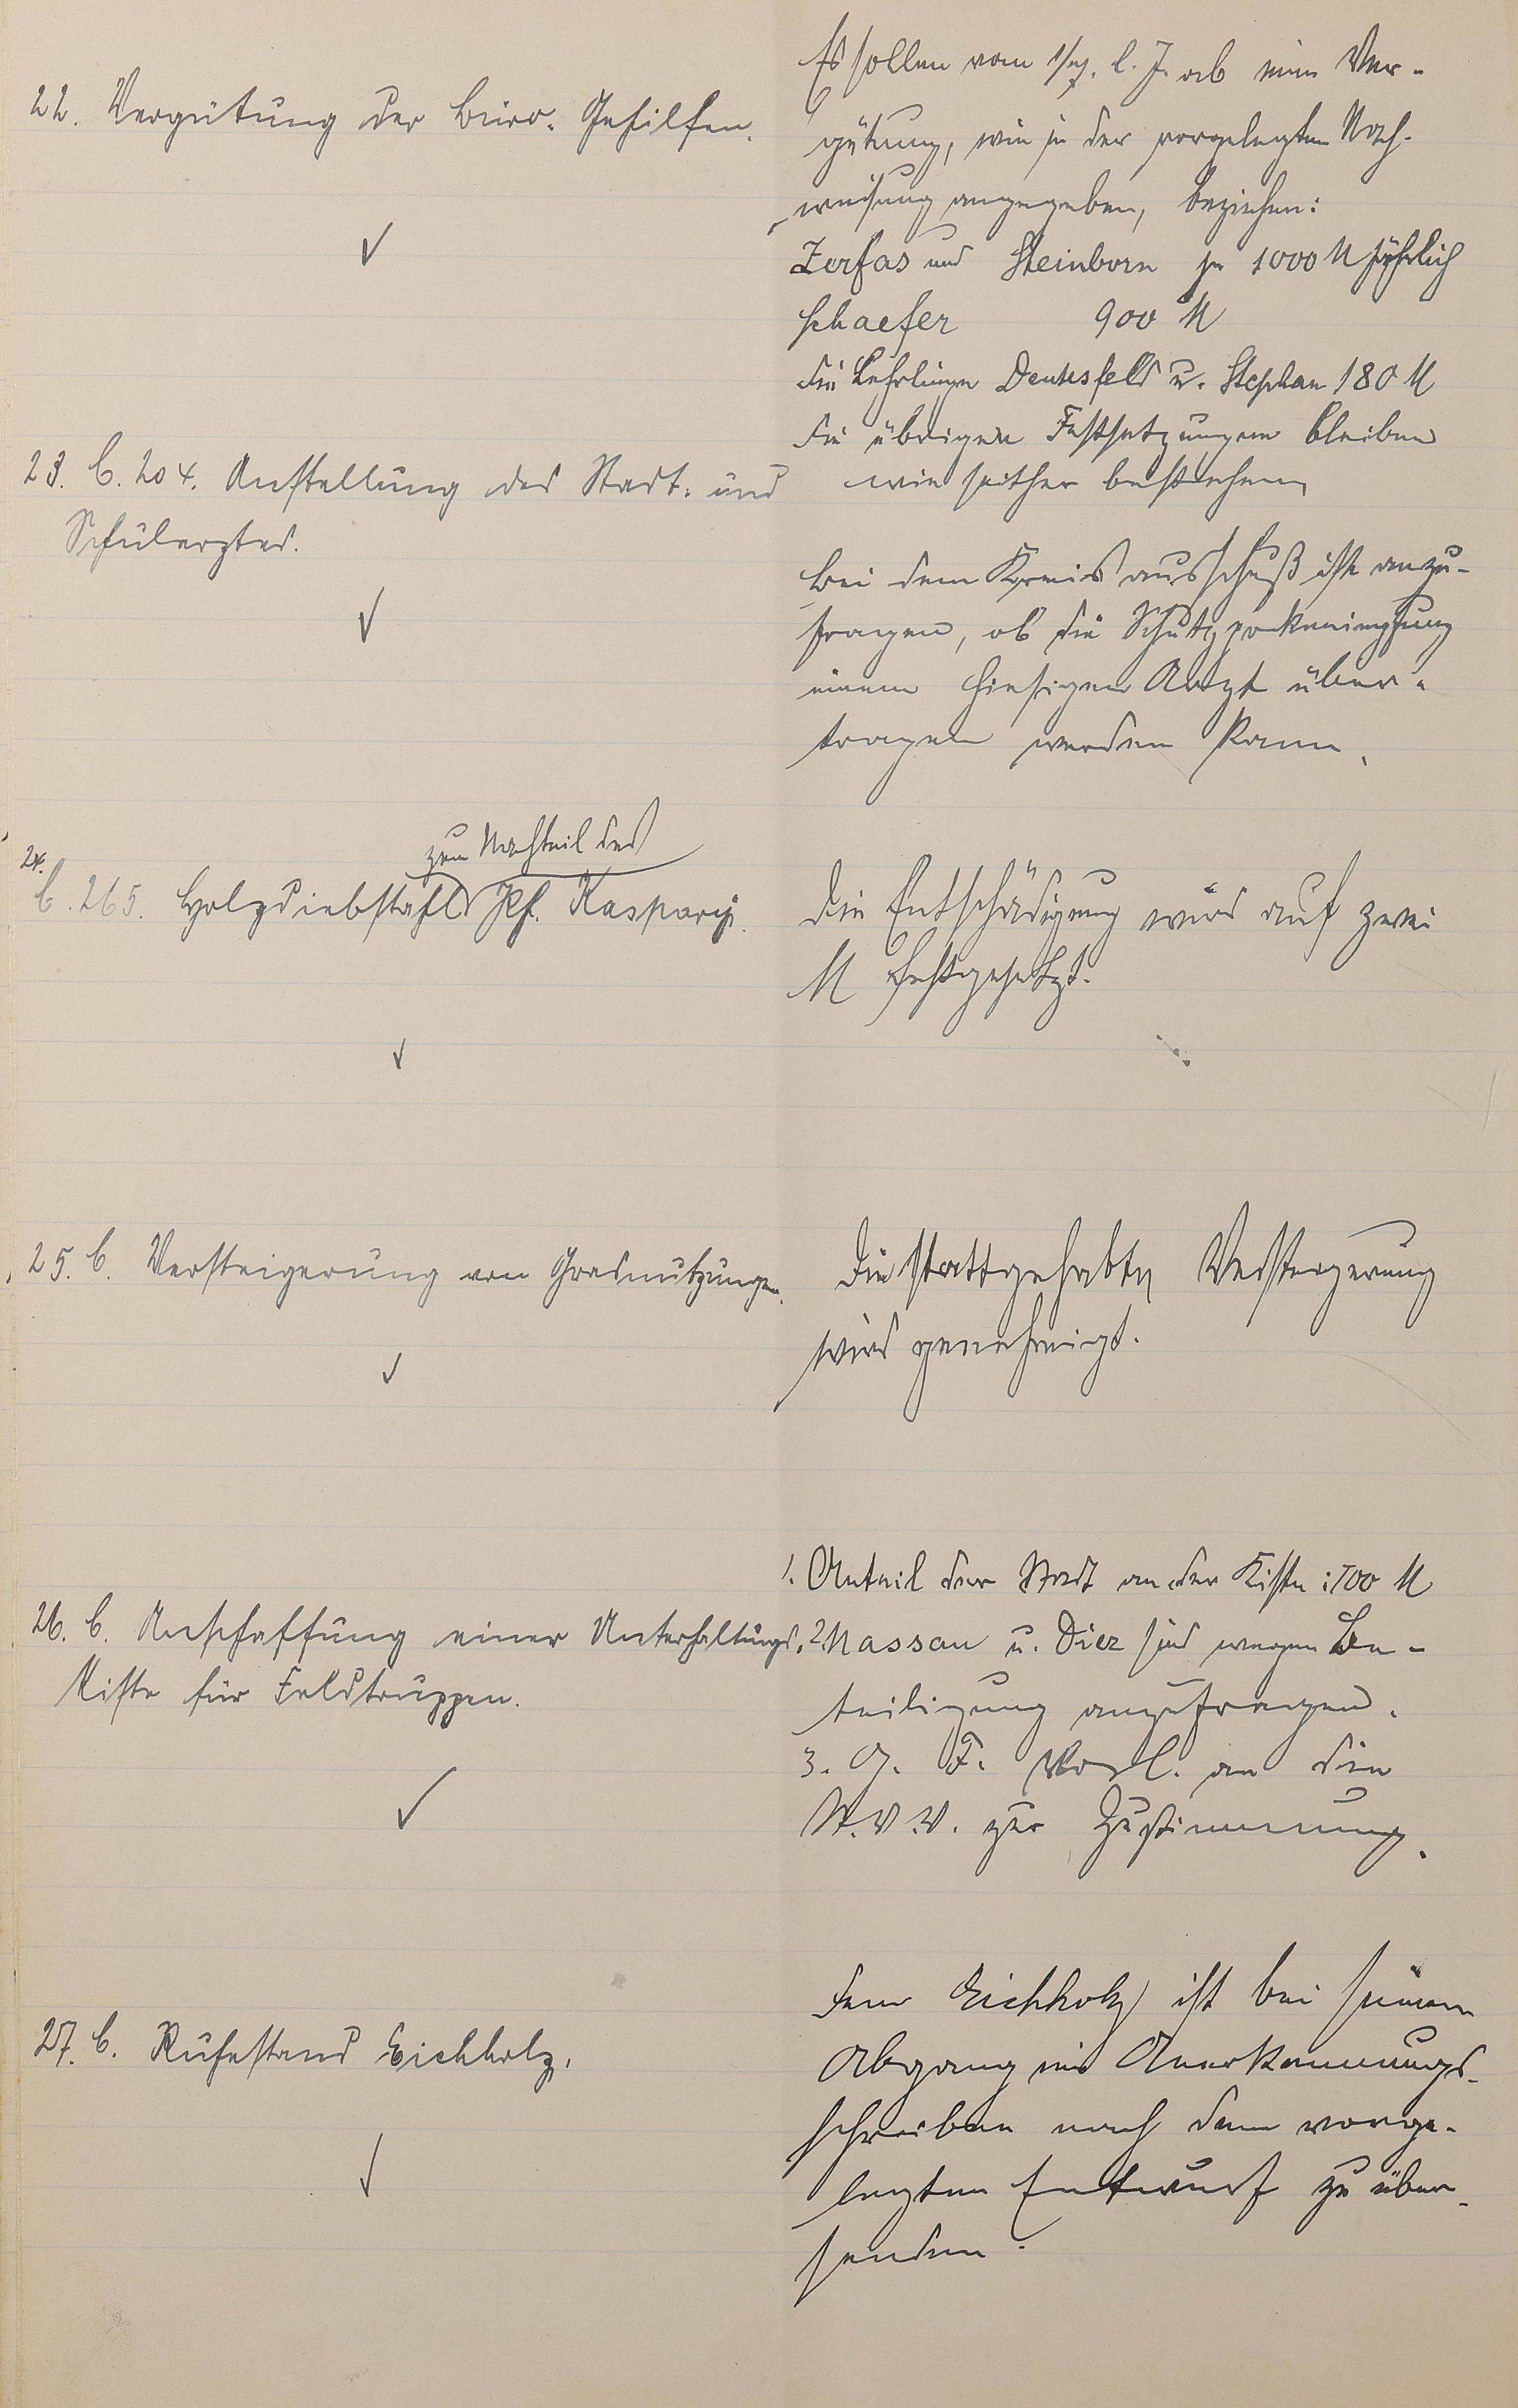 22. Vergütung der Büro-Gehilfen.
Es sollen vom 1/7. l. J. ab eine Ver-
gütung, wie in der vorgelegten Nach-
weisung angegeben, beziehen:
Zerfas und Steinborn je 1000 M jährlich
Schaefer 900 M
die Lehrlinge Deutesfeld u. Stephan 180 M
die übrigen Festsetzungen bleiben
wie seither bestehen
23. C. 204. Anstellung des Stadt- und
Schularztes.
Bei dem Kreisausschuß ist anzu-
fragen, ob die Schutzpockenimpfung
einem hiesigen Arzt über-
tragen werden kann.
24.
C. 265. Holzdiebstahl zum Nachteil des Jos. Kaspary.
Die Entschädigung wird auf zwei
M festgesetzt.
25. C. Versteigerung von Grasnutzungen.
Die stattgehabte Versteigerung
wird genehmigt.
26. C. Anschaffung einer Unterhaltungs-
Kiste für Feldtruppen.
1. Anteil der Stadt an der Kiste: 700 M
2. Nassau u. Diez sind wegen Be-
teiligung anzufragen.
3. G. F. Vorl. an die
St.V.V. zur Zustimmung.
27. C. Ruhestand Eichholz.
Dem Eichholz ist bei seinem
Abgang ein Anerkennungs-
schreiben nach dem vorge-
legten Entwurf zu über-
senden.